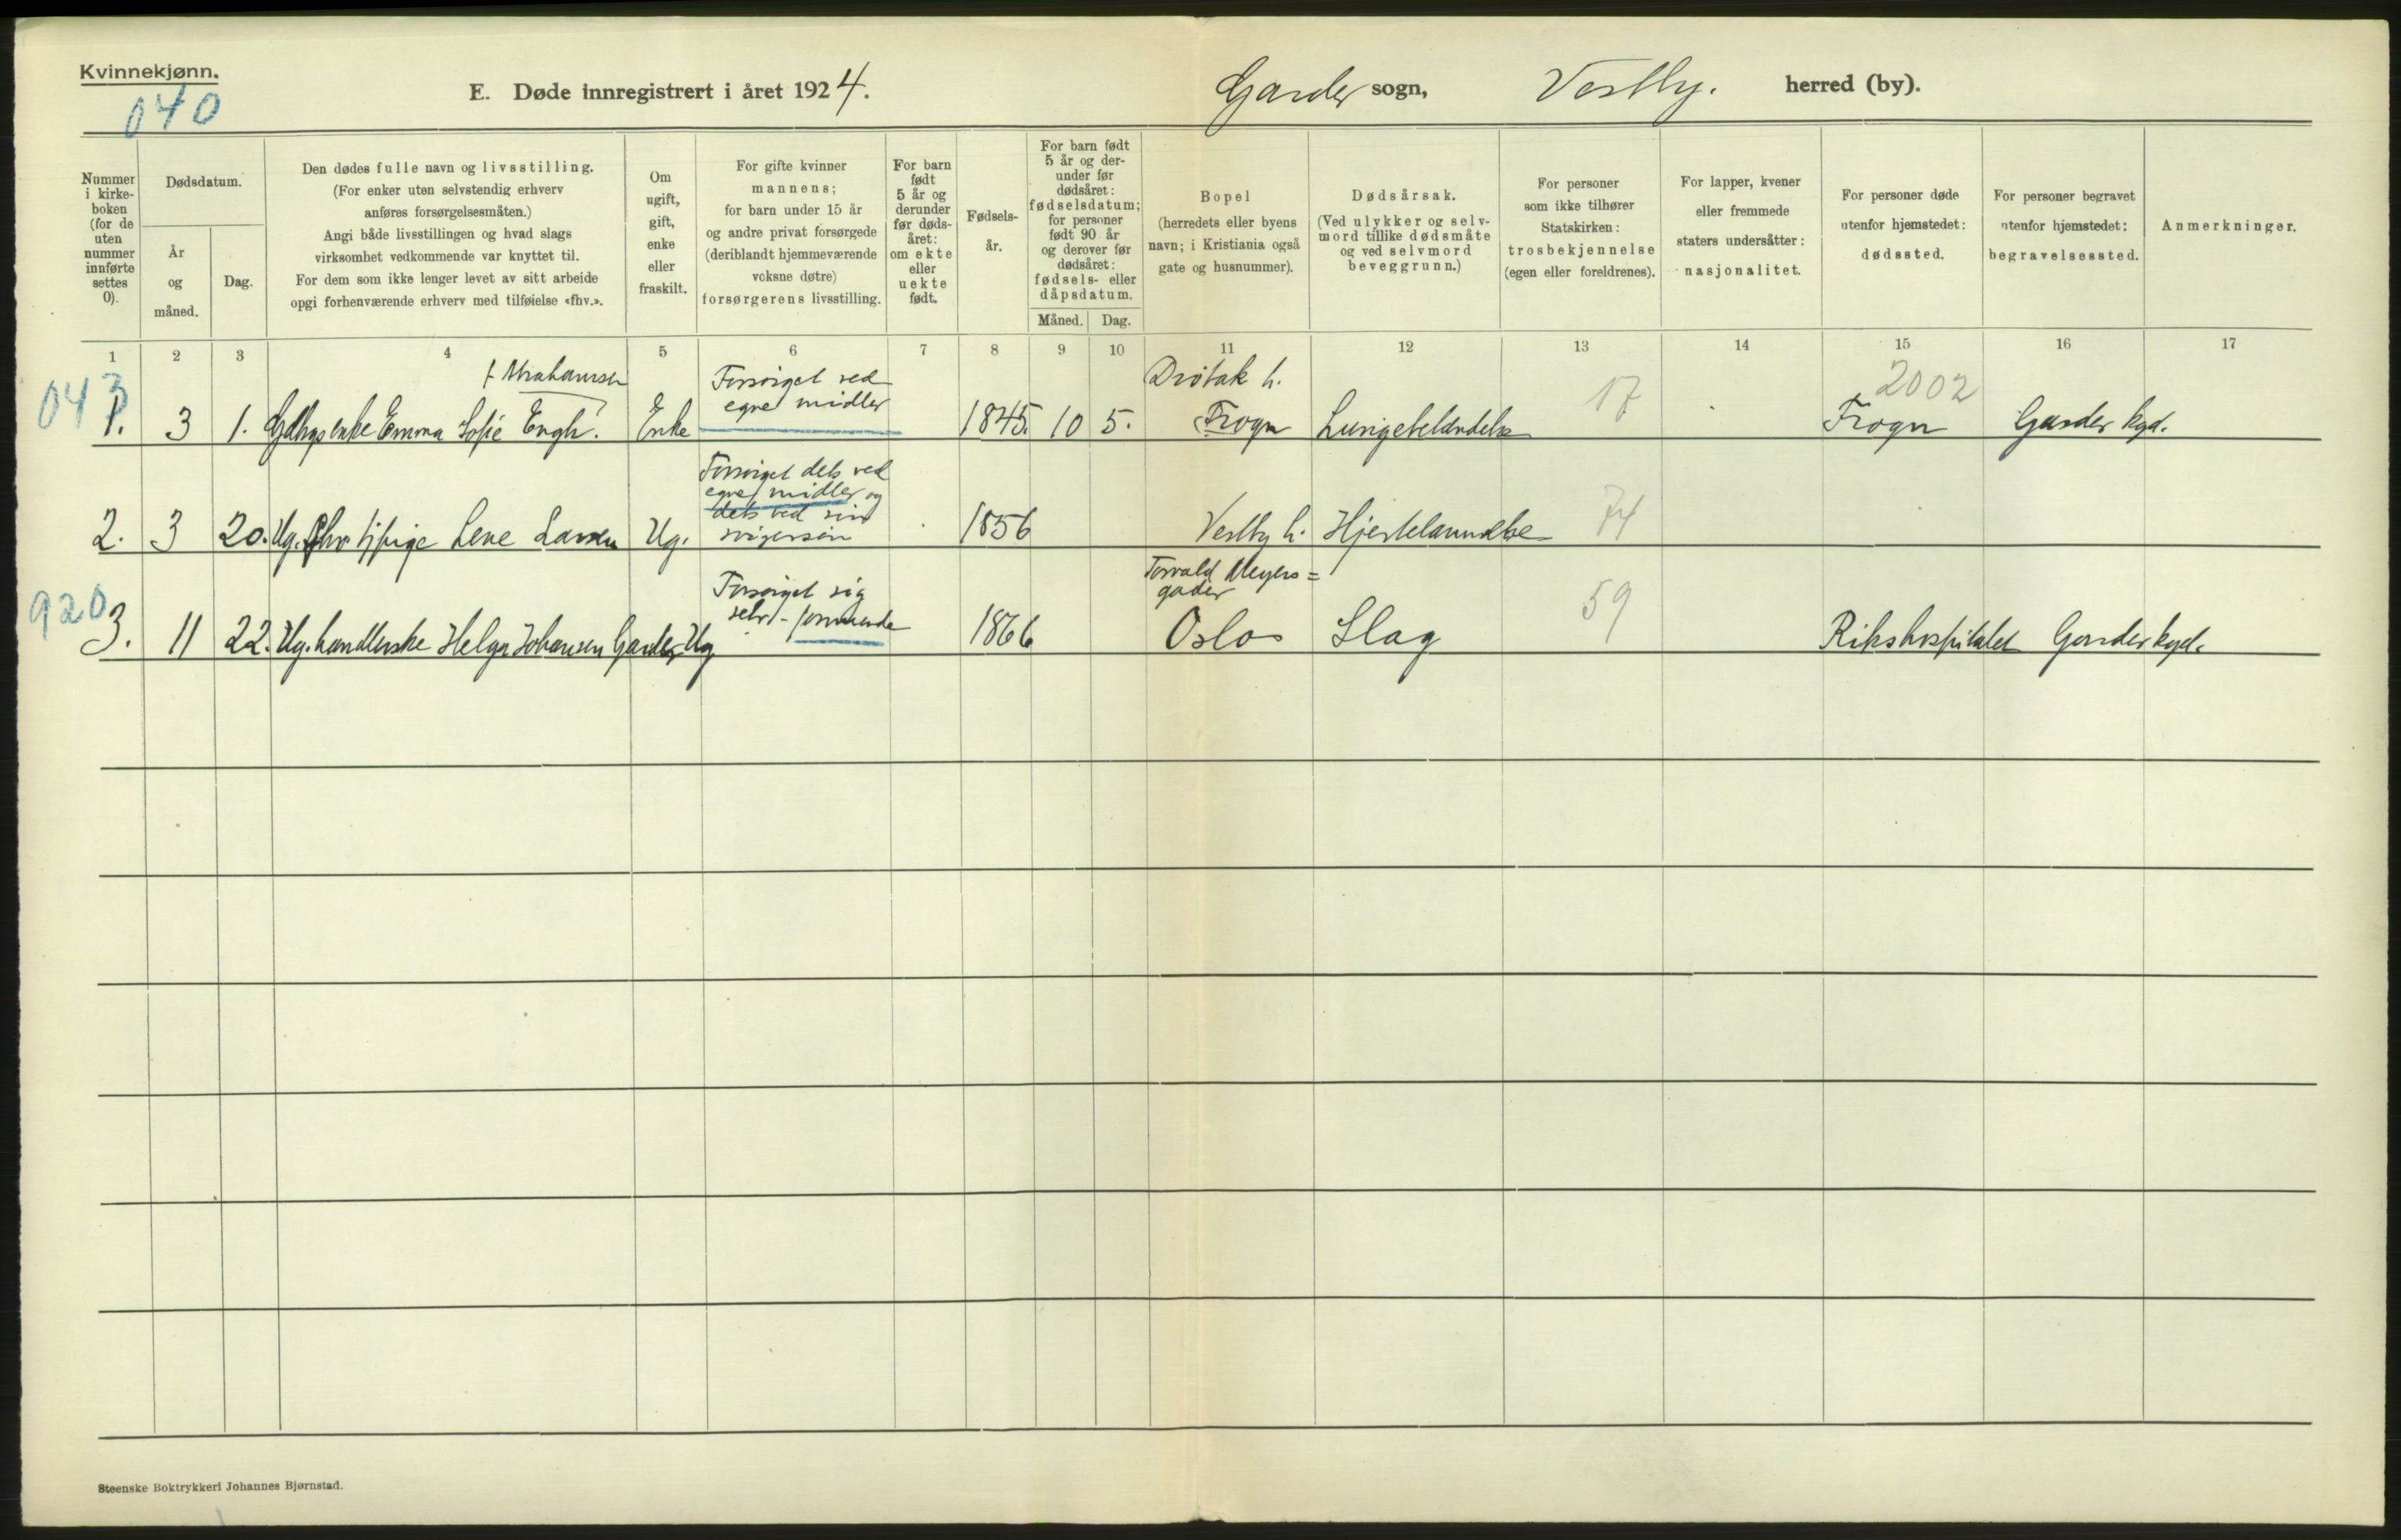 Kvinnekjønn.
040
E. Døde innregistrert i året 1924.
Garder sogn, Vestby. herred (by).
Nummer
i kirke-
boken
(for de
uten
nummer
innførte
settes
0).
Dødsdatum.
År
og
måned.
Dag.
Den dødes fulle navn og livsstilling.
(For enker uten selvstendig erhverv
anføres forsørgelsesmåten.)
Angi både livsstillingen og hvad slags
virksomhet vedkommende var knyttet til.
For dem som ikke lenger levet av sitt arbeide
opgi forhenværende erhverv med tilføielse «fhv.».
Om
ugift,
gift,
enke
eller
fraskilt.
For gifte kvinner
mannens;
for barn under 15 år
og andre privat forsørgede
(deriblandt hjemmeværende
voksne døtre)
forsørgerens livsstilling.
For barn
født
5 år og
derunder
før døds-
året:
om ekte
eller
uekte
født.
Fødsels-
år.
For barn født
5 år og der-
under før
dødsåret:
fødselsdatum;
for personer
født 90 år
og derover før
dødsåret:
fødsels- eller
dåpsdatum.
Måned. Dag.
Bopel
(herredets eller byens
navn; i Kristiania også
gate og husnummer).
Dødsårsak.
(Ved ulykker og selv-
mord tillike dødsmåte
og ved selvmord
beveggrunn.)
For personer
som ikke tilhører
Statskirken:
trosbekjennelse
(egen eller foreldrenes).
For lapper, kvener
eller fremmede
staters undersåtter:
nasjonalitet.
For personer døde
utenfor hjemstedet:
dødssted.
For personer begravet
utenfor hjemstedet:
begravelsessted.
Anmerkninger.
1 2 3 4 5 6 7 8 9 10 11 12 13 14 15 16 17
f Abrahamsen
Forsørget ved
egne midler
Drøbak h.
2002
043
1. 3 1. enke Emma Sofie Engh. Enke 1845. 10 5. Frogn Lungebetændelse 17 Frogn Garder kgd.
Forsørget dels ved
egne midler og
dels ved sin
svigersøn
2. 3 20. Ug. fhv. tjpige Lene Larsen Ug. 1856 Vestby h. Hjertelammelse 74
Torvald Meyers=
gader
Forsørget sig
selv - formuende
920
3. 11 22. Ug. handlerske Helga Johansen Garder Ug. 1866 Oslo Slag 59 Rikshospitalet Garder kgd.
Steenske Boktrykkeri Johannes Bjørnstad.